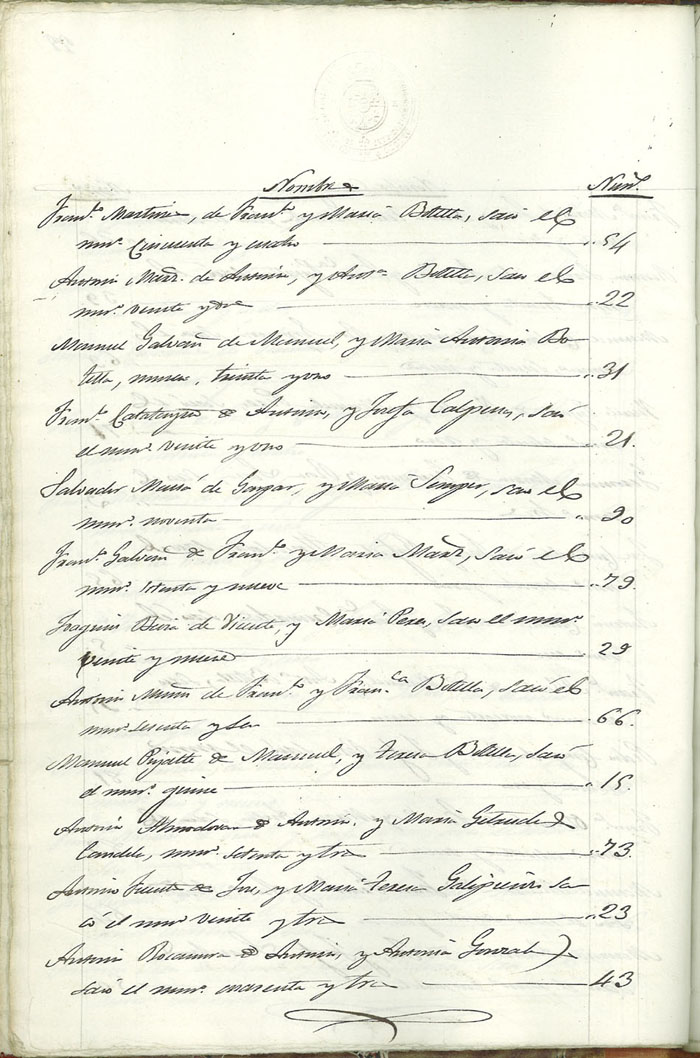 Nombres Núm.
Franco. Martinez, de Franco. y Maria Botella, sacó el
numo. cincuenta y cuatro 54
Antonio Marz. de Antonio, y Anta. Botella, saco el
numo. veinte y dos 22
Manuel Galvañ de Manuel, y Maria Antonia Bo-
tella, numero, treinta y uno 31
Franco. de Antonio, y Josefa Calpena, sacó
el numo. veinte y uno 21.
Salvador de Gaspar, y Maria Semper, saco el
numo. noventa 90
Franco. Galvañ de Franco. y Maria Marz, sacó el
numo. setenta y nueve 79.
Joaquin de Vicente, y Maria Perez, saco el numo.
veinte y nueve 29
Antonio de Franco. y Franca. Botella, sacó el
numo. sesenta y seis 66.
Manuel Pujalte de Manuel, y Teresa Botella, sacó
el numo. quince 15.
Antonio Almodovar de Antonio, y Maria Getrudes
Candela, numo. setenta y tres 73.
Antonio Fuentes de Jose, y Maria Teresa sa
có el numo. veinte y tres 23
Antonio Rocamora de Antonio, y Antonia Gonzalez
sacó el numo. cuarenta y tres 43